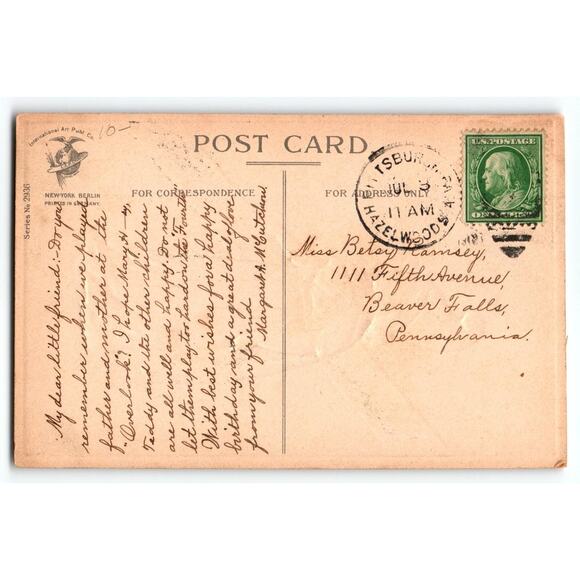 International Art Publ. Co.
NEW YORK BERLIN
PRINTED IN GERMANY.
Series No. 2936
10-
POST CARD
FOR CORRESPONDENCE
FOR ADDRESS ONLY
PITTSBURGH, PA.
JUL 3
11 AM
HAZELWOOD STA.
U.S. POSTAGE
My dear little friend:- Do you
remember when we played
father and mother at the
"Overlook"? I hope Mary H-,
Teddy and the other children
are all well and happy. Do not
let them play too hard on the Fourth.
With best wishes for a happy
birthday and a great deal of love
from your friend
Margaret A. McCutcheon.
Miss Betsy Ramsey,
1111 Fifth Avenue,
Beaver Falls,
Pennsylvania.